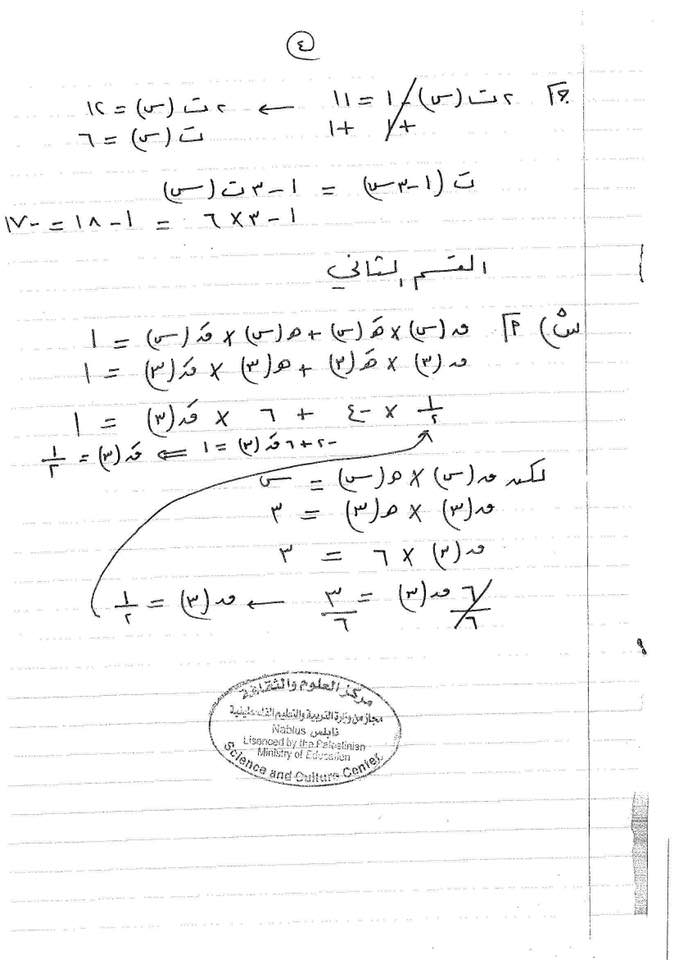 ٤
ج) ٢ت(س) - ١ = ١١ ← ٢ت(س) = ١٢
+١ +١ ت(س) = ٦
ت(١-٣س) = ١-٣ت(س)
١-٣×٦ = ١-١٨ = -١٧
القسم الثاني
س٥) أ) ق(س)×هَ(س)+ه(س)×قَ(س) = ١
ق(٣)×هَ(٣)+ه(٣)×قَ(٣) = ١
١/٢ × -٤ + ٦ × قَ(٣) = ١
-٢+٦قَ(٣) = ١ ⇐ قَ(٣) = ١/٢
لكن ق(س)×ه(س) = س
ق(٣)×ه(٣) = ٣
ق(٣)×٦ = ٣
٦/٦ ق(٣) = ٣/٦ ← ق(٣) = ١/٢
مركز العلوم والثقافة
مجاز من وزارة التربية والتعليم الفلسطينية
نابلس Nablus
Lisenced by the Palestinian
Ministry of Education
Science and Culture Center